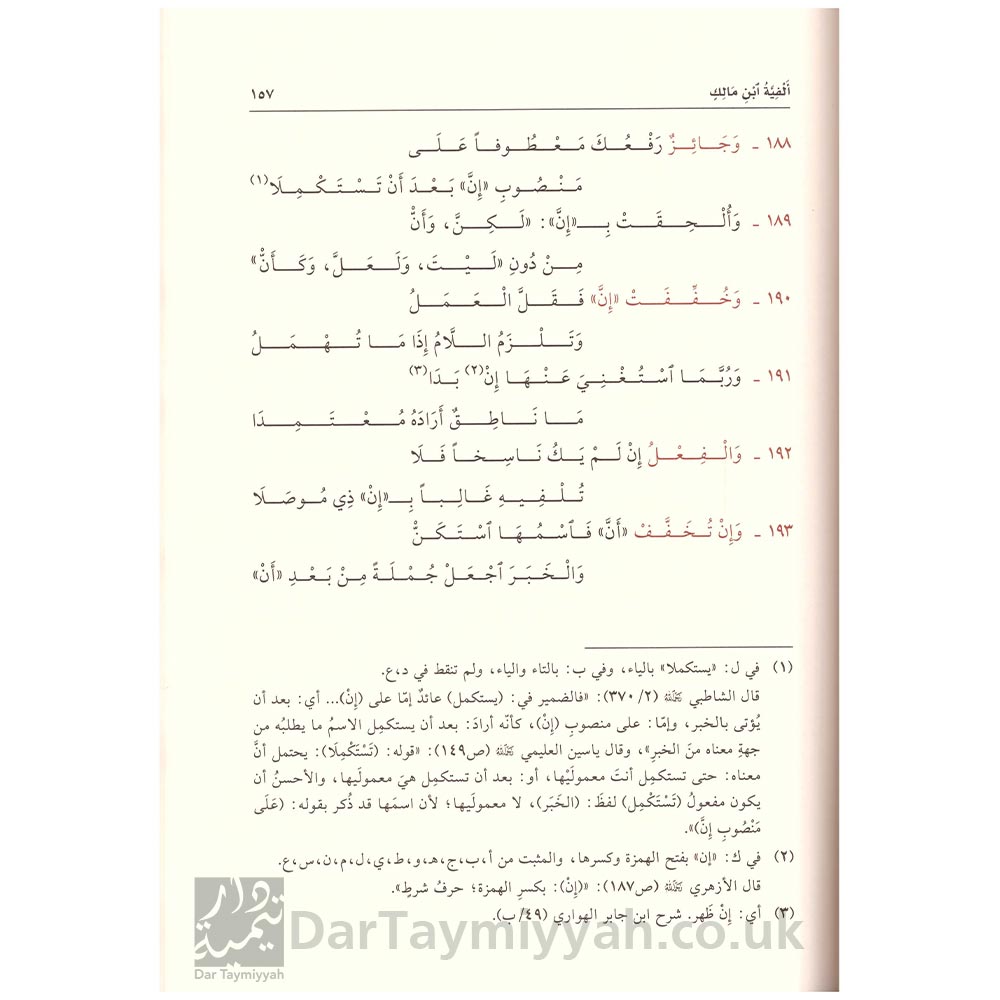 أَلْفِيَّةُ ٱبْنِ مَالِكٍ ١٥٧
١٨٨ ـ وَجَائِزٌ رَفْعُكَ مَعْطُوفاً عَلَى
مَنْصُوبِ «إِنَّ» بَعْدَ أَنْ تَسْتَكْمِلَا(١)
١٨٩ ـ وَأُلْحِقَتْ بِـ«إِنَّ»: «لَكِنَّ، وَأَنَّ
مِنْ دُونِ «لَيْتَ، وَلَعَلَّ، وَكَأَنَّ»
١٩٠ ـ وَخُفِّفَتْ «إِنَّ» فَقَلَّ الْعَمَلُ
وَتَلْزَمُ اللَّامُ إِذَا مَا تُهْمَلُ
١٩١ ـ وَرُبَّمَا ٱسْتُغْنِيَ عَنْهَا إِنْ(٢) بَدَا(٣)
مَا نَاطِقٌ أَرَادَهُ مُعْتَمِدَا
١٩٢ ـ وَالْفِعْلُ إِنْ لَمْ يَكُ نَاسِخاً فَلَا
تُلْفِيهِ غَالِباً بِـ«إِنْ» ذِي مُوصَلَا
١٩٣ ـ وَإِنْ تُخَفَّفْ «أَنَّ» فَٱسْمُهَا ٱسْتَكَنّْ
وَالْخَبَرَ ٱجْعَلْ جُمْلَةً مِنْ بَعْدِ «أَنْ»
(١) في ل: «يستكملا» بالياء، وفي ب: بالتاء والياء، ولم تنقط في د،ع.
قال الشاطبي ﵀ (٢/ ٣٧٠): «فالضمير في: (يستكمل) عائدٌ إمّا على (إنْ)... أي: بعد أن
يُؤتى بالخبر، وإمّا: على منصوبِ (إنْ)، كأنّه أرادَ: بعد أن يستكمِل الاسمُ ما يطلبُه من
جهةِ معناه منَ الخبرِ»، وقال ياسين العليمي ﵀ (ص١٤٩): «قوله: (تَسْتَكْمِلَا): يحتمل أنَّ
معناه: حتى تستكمِل أنتَ معمولَيْها، أو: بعد أن تستكمِل هيَ معمولَيها، والأحسنُ أن
يكون مفعولُ (تَسْتَكْمِل) لفظَ: (الخَبَر)، لا معمولَيها؛ لأن اسمَها قد ذُكر بقوله: (عَلَى
مَنْصُوبِ إِنَّ)».
(٢) في ك: «إن» بفتح الهمزة وكسرها، والمثبت من أ،ب،ج،هـ،و،ط،ي،ل،م،ن،س،ع.
قال الأزهري ﵀ (ص١٨٧): «(إنْ): بكسرِ الهمزة؛ حرفُ شرطٍ».
(٣) أي: إنْ ظهر. شرح ابن جابر الهواري (٤٩/ ب).
دار تيمية
Dar Taymiyyah
DarTaymiyyah.co.uk